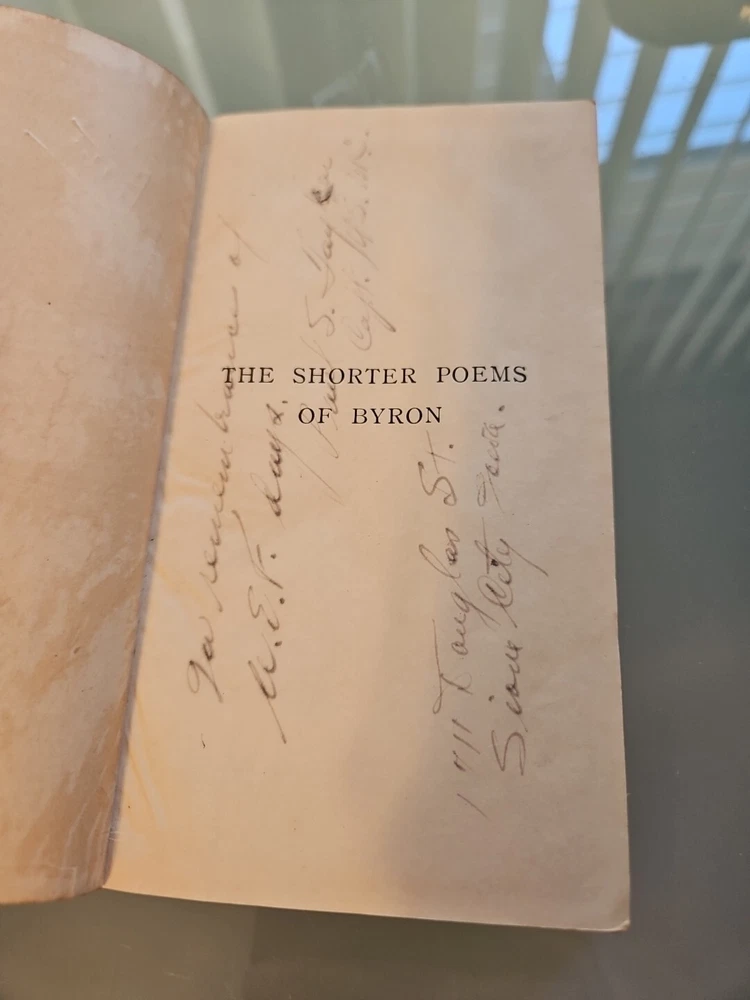 THE SHORTER POEMS
OF BYRON
In remembrance of
days.
S. Taylor
Capt.
1711 Douglas St.
Sioux City Iowa.